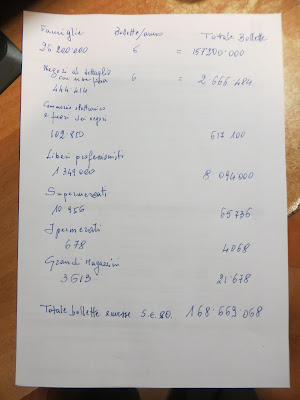 Famiglie Bollette/anno Totale Bollette
26 200'000 6 = 157200'000
Negozi al dettaglio
con sede fissa 6 = 2 666 484
444 414
Commercio elettronico
e fuori dai negozi
102.850 617 100
Liberi professionisti
1 349 000 8 094 000
Supermercati
10 956 65736
Ipermercati
678 4068
Grandi Magazzini
3613 21'678
Totale bollette emesse S.e.&O. 168'669'068